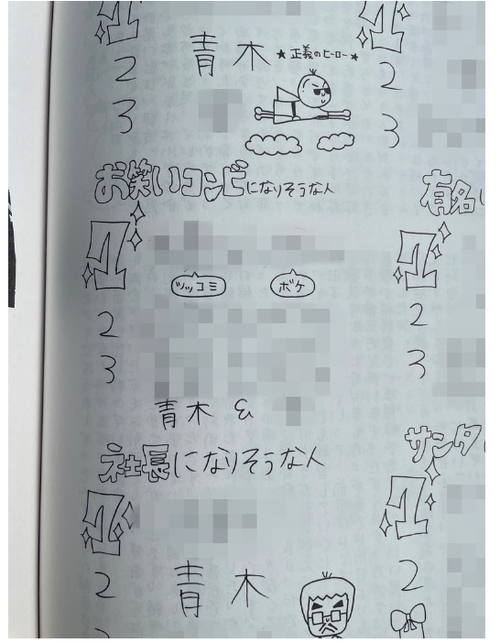 1
青木 ★正義のヒーロー★
2
3
お笑いコンビになりそうな人
1
ツッコミ ボケ
2
3
青木 &
社長になりそうな人
1
2 青木
3
1
2
3
有名
1
2
3
サンタ
1
2